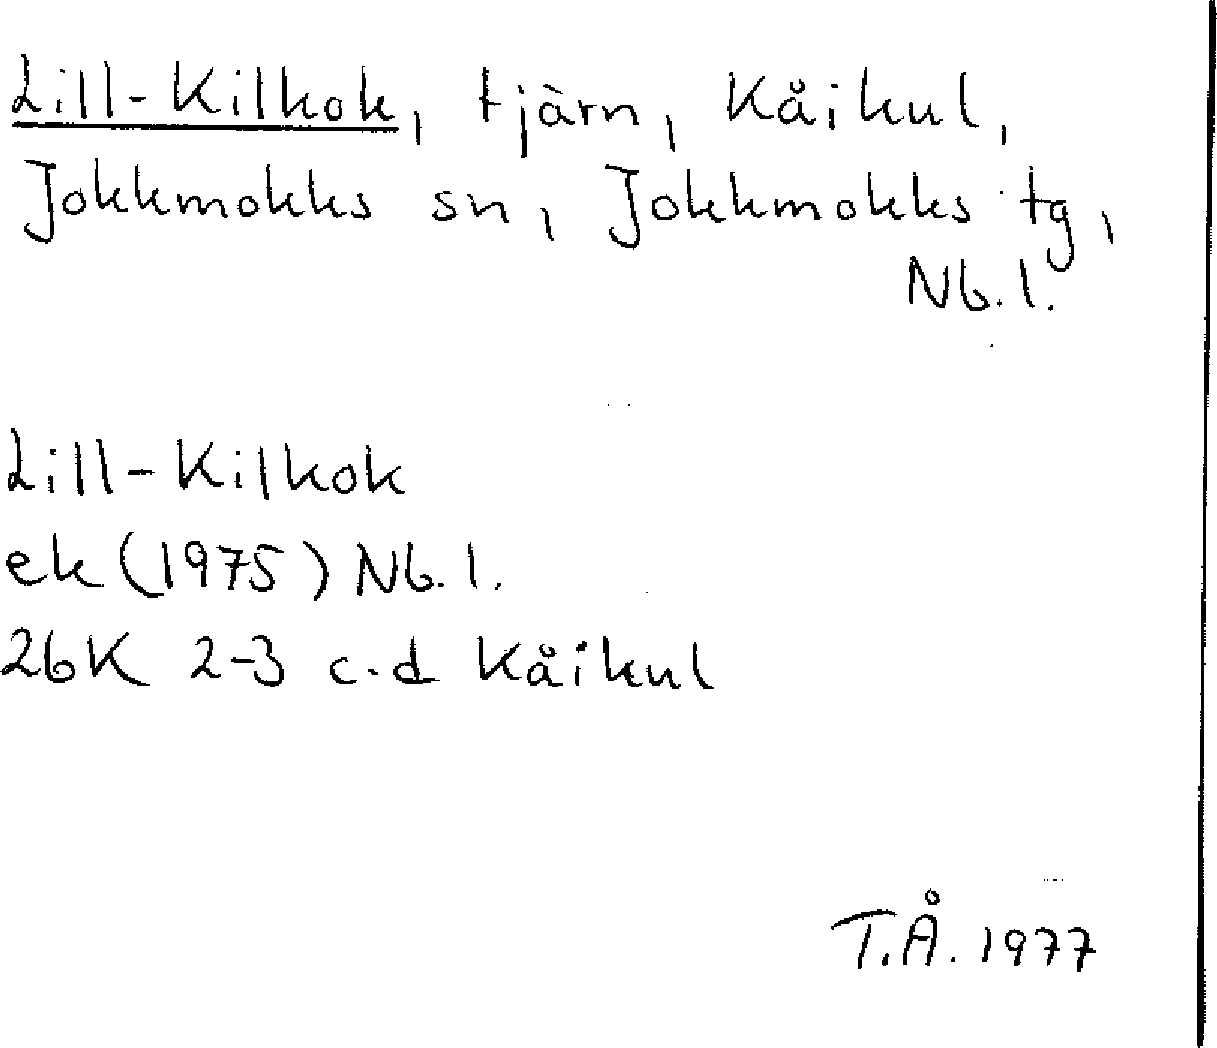 Lill-Kilkok, tjärn, Kåikul,
Jokkmokks sn, Jokkmokks tg,
Nb.l.
Lill-Kilkok
ek (1975) Nb.l.
26K 2-3 c-d Kåikul
T.Å. 1977